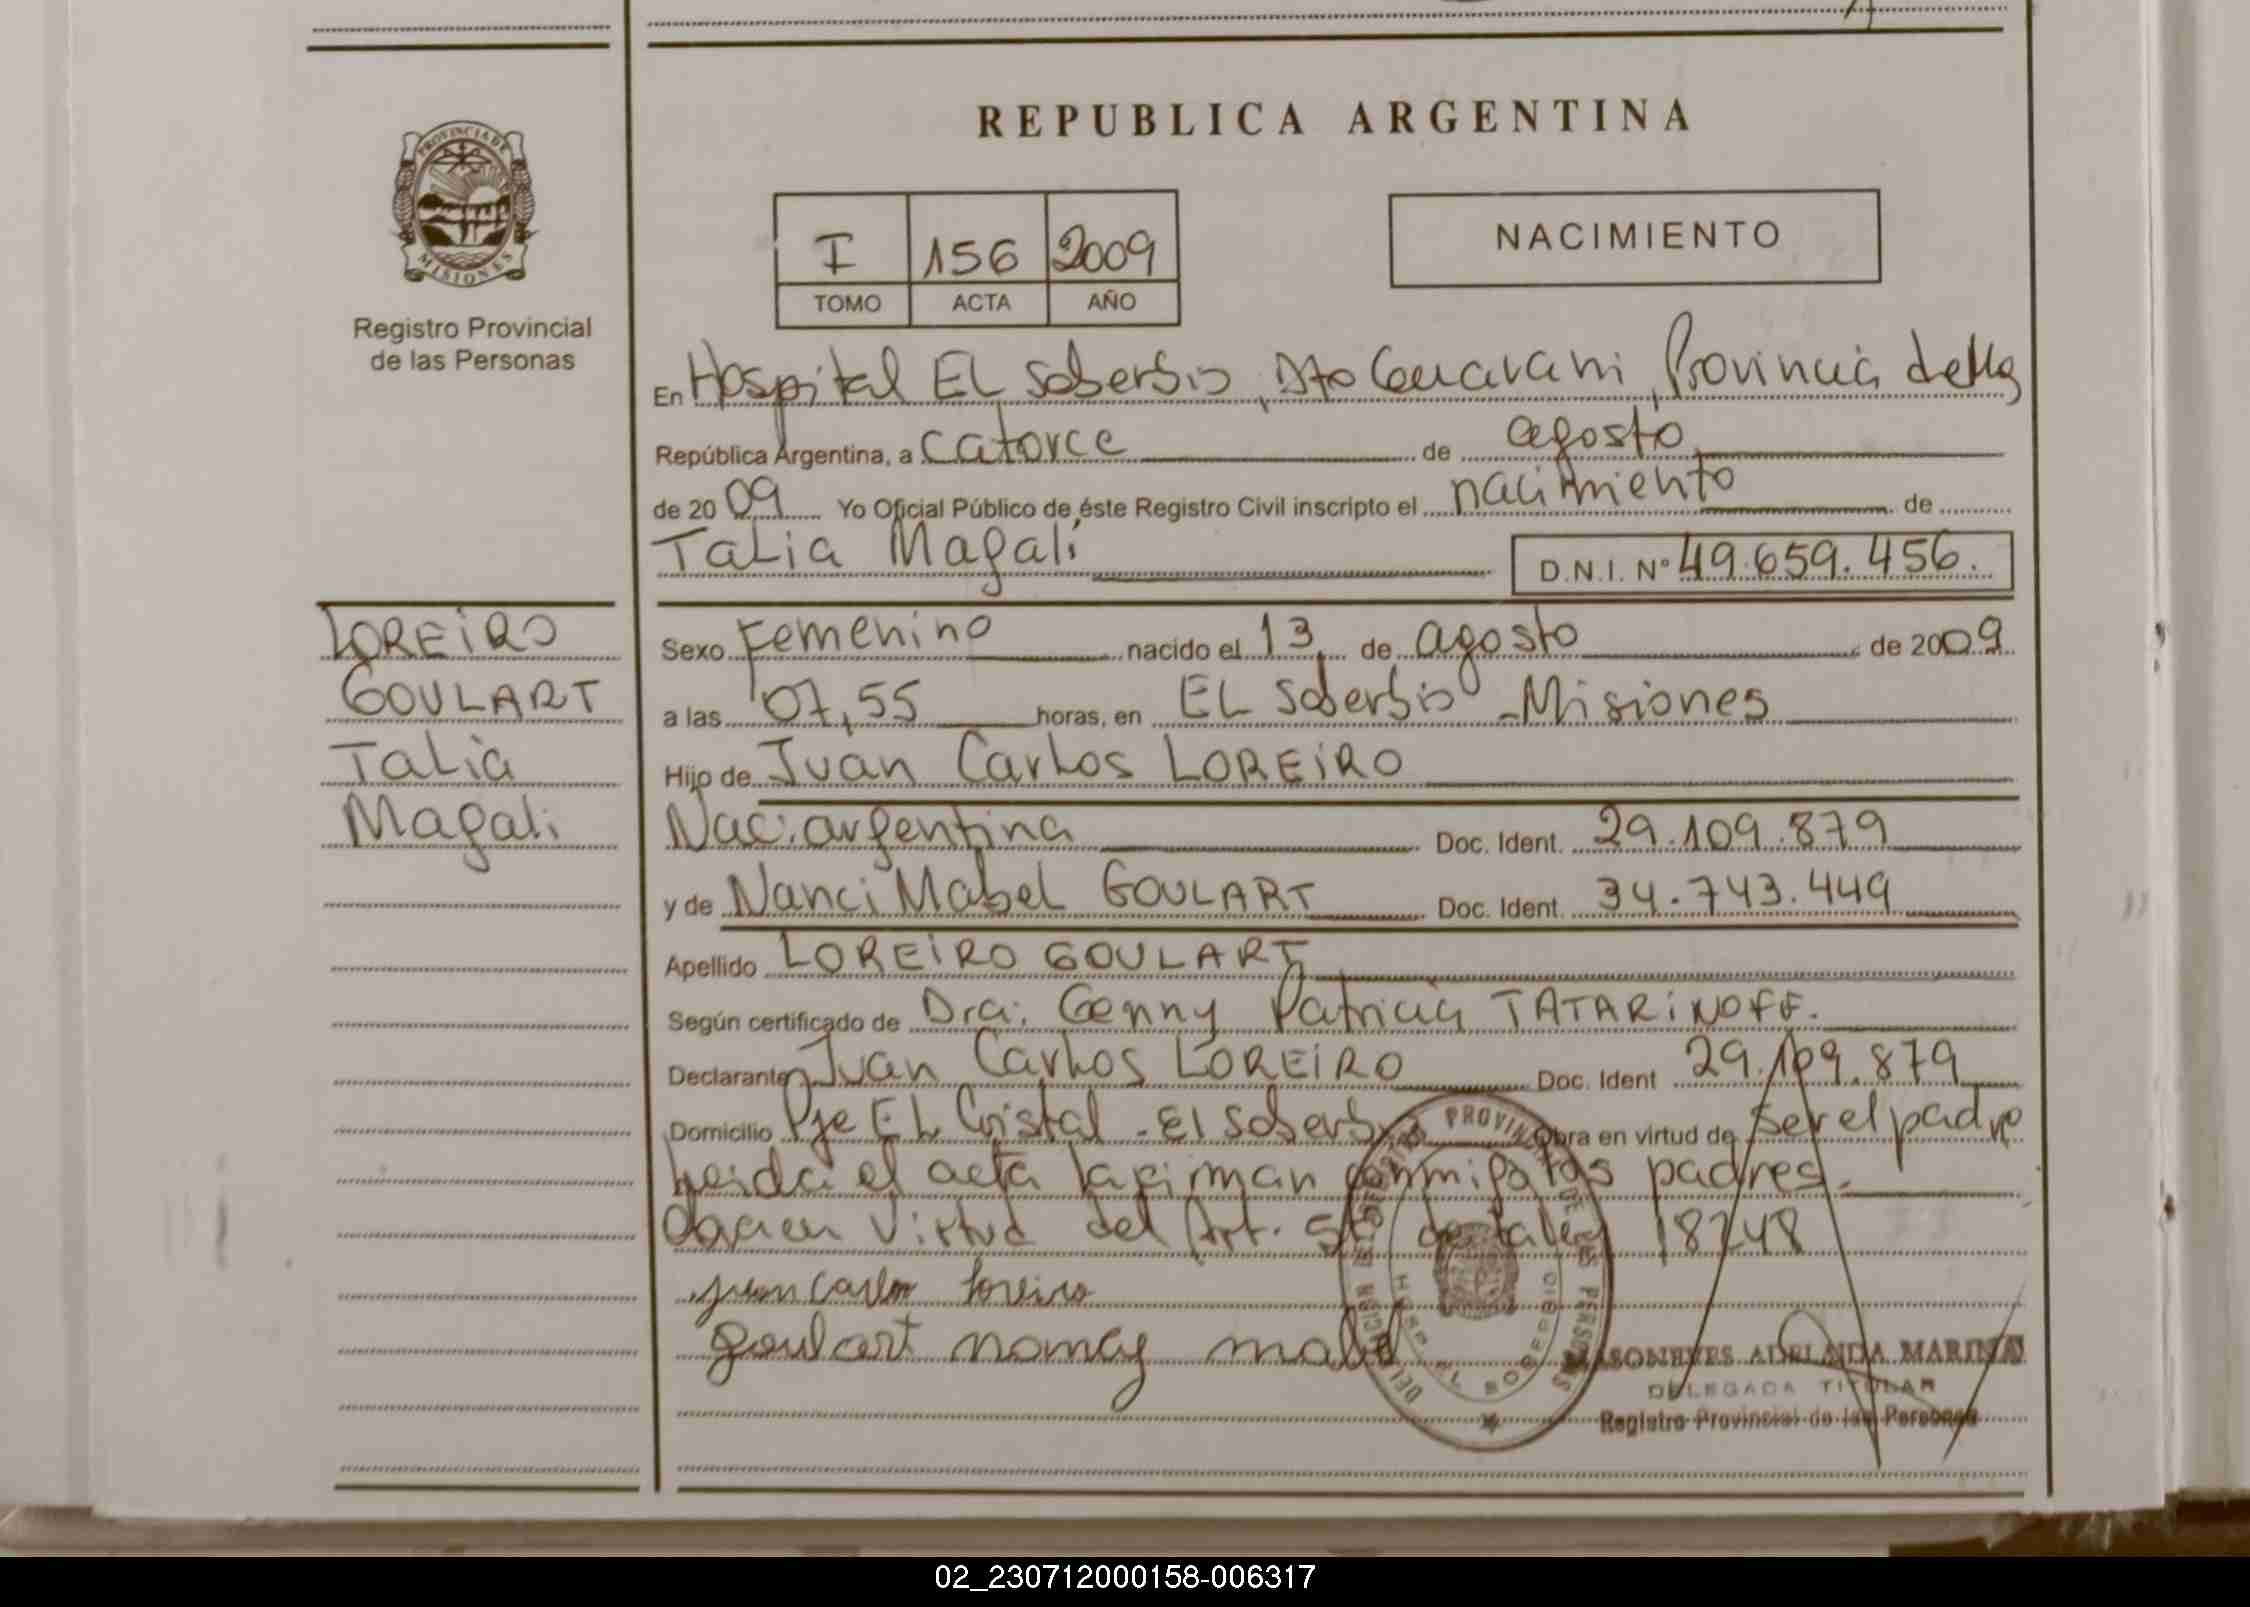 REPUBLICA ARGENTINA
PROVINCIA DE
MISIONES
Registro Provincial
de las Personas
I 156 2009
TOMO ACTA AÑO
NACIMIENTO
En Hospital EL Soberbio, Dto Guarani, Provincia de Ms
República Argentina, a catorce de agosto
de 2009 Yo Oficial Público de éste Registro Civil inscripto el nacimiento de
Talia Magali
D.N.I. Nº 49.659.456.
LOREIRO
GOULART
Talia
Magali
Sexo Femenino nacido el 13 de agosto de 2009
a las 07,55 horas, en EL Soberbio - Misiones
Hijo de Juan Carlos LOREIRO
Nac. argentina Doc. Ident. 29.109.879
y de Nanci Mabel GOULART Doc. Ident. 34.743.449
Apellido LOREIRO GOULART
Según certificado de Dra. Genny Patricia TATARINOFF.
Declarante Juan Carlos LOREIRO Doc. Ident 29.109.879
Domicilio Pje EL Cristal - El Soberbio Obra en virtud de ser el padre
Leida el acta la firman conmigo los padres.
virtud del Art. 5º de la ley 18248
Juan Carlos Loreiro
goulart nancy mabel
DELEGACION REGISTRO PROVINCIAL DE LAS PERSONAS
HOSP. EL SOBERBIO
MASONEVES ADELAIDA MARINA
DELEGADA TITULAR
Registro Provincial de las Personas
02_230712000158-006317